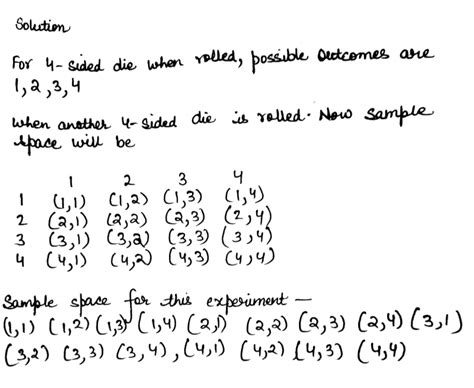 Solution
For 4-sided die when rolled, possible Outcomes are
1,2,3,4
When another 4-sided die is rolled. Now Sample
space will be
1 2 3 4
1 (1,1) (1,2) (1,3) (1,4)
2 (2,1) (2,2) (2,3) (2,4)
3 (3,1) (3,2) (3,3) (3,4)
4 (4,1) (4,2) (4,3) (4,4)
Sample space for this experiment —
(1,1) (1,2) (1,3) (1,4) (2,1) (2,2) (2,3) (2,4) (3,1)
(3,2) (3,3) (3,4), (4,1) (4,2) (4,3) (4,4)